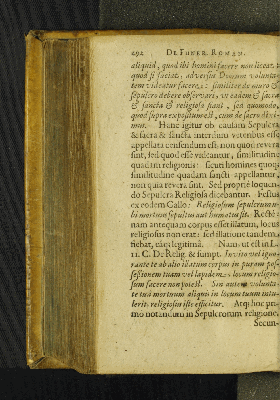 292 DE FUNER. ROMAN.
aliquid, quod ibi homini facere non liceat,
quod si faciat, adversus Deorum volunta-
tem videatur facere: similiter de muro &
sepulcro debere observari, ut eadem & sacra
& sancta & religiosa fiant, sed quomodo,
quod supra expositum est, cum de sacro dixi-
mus. Hanc igitur ob causam Sepulcra
& sacra & sancta interdum veteribus esse
appellata censendum est, non quod revera
sint, sed quod esse videantur, similitudine
quadam religionis: sicuti homines quoque
similitudine quadam sancti appellantur,
non quia revera sint. Sed proprie loquen-
do Sepulcra Religiosa dicebantur. Festus
ex eodem Gallo: Religiosum sepulcrum u-
bi mortuus sepultus aut humatus sit. Recte:
nam antequam corpus esset illatum, locus
religiosus non erat: sed illatione tandem
fiebat, vaque legitimâ. Nam ut est in L.
II. C. De Relig. & sumpt. Invito vel igno-
rante te ab alio illatum corpus in puram pos-
sessionem tuam vel lapidem, locum religio-
sum facere non potest. Sin autem volunta-
te tuâ mortuum aliquis in locum tuum intu-
lerit, religiosus iste efficitur. Atq; hoc pri-
mo notandum in Sepulcrorum religione.
Secun-